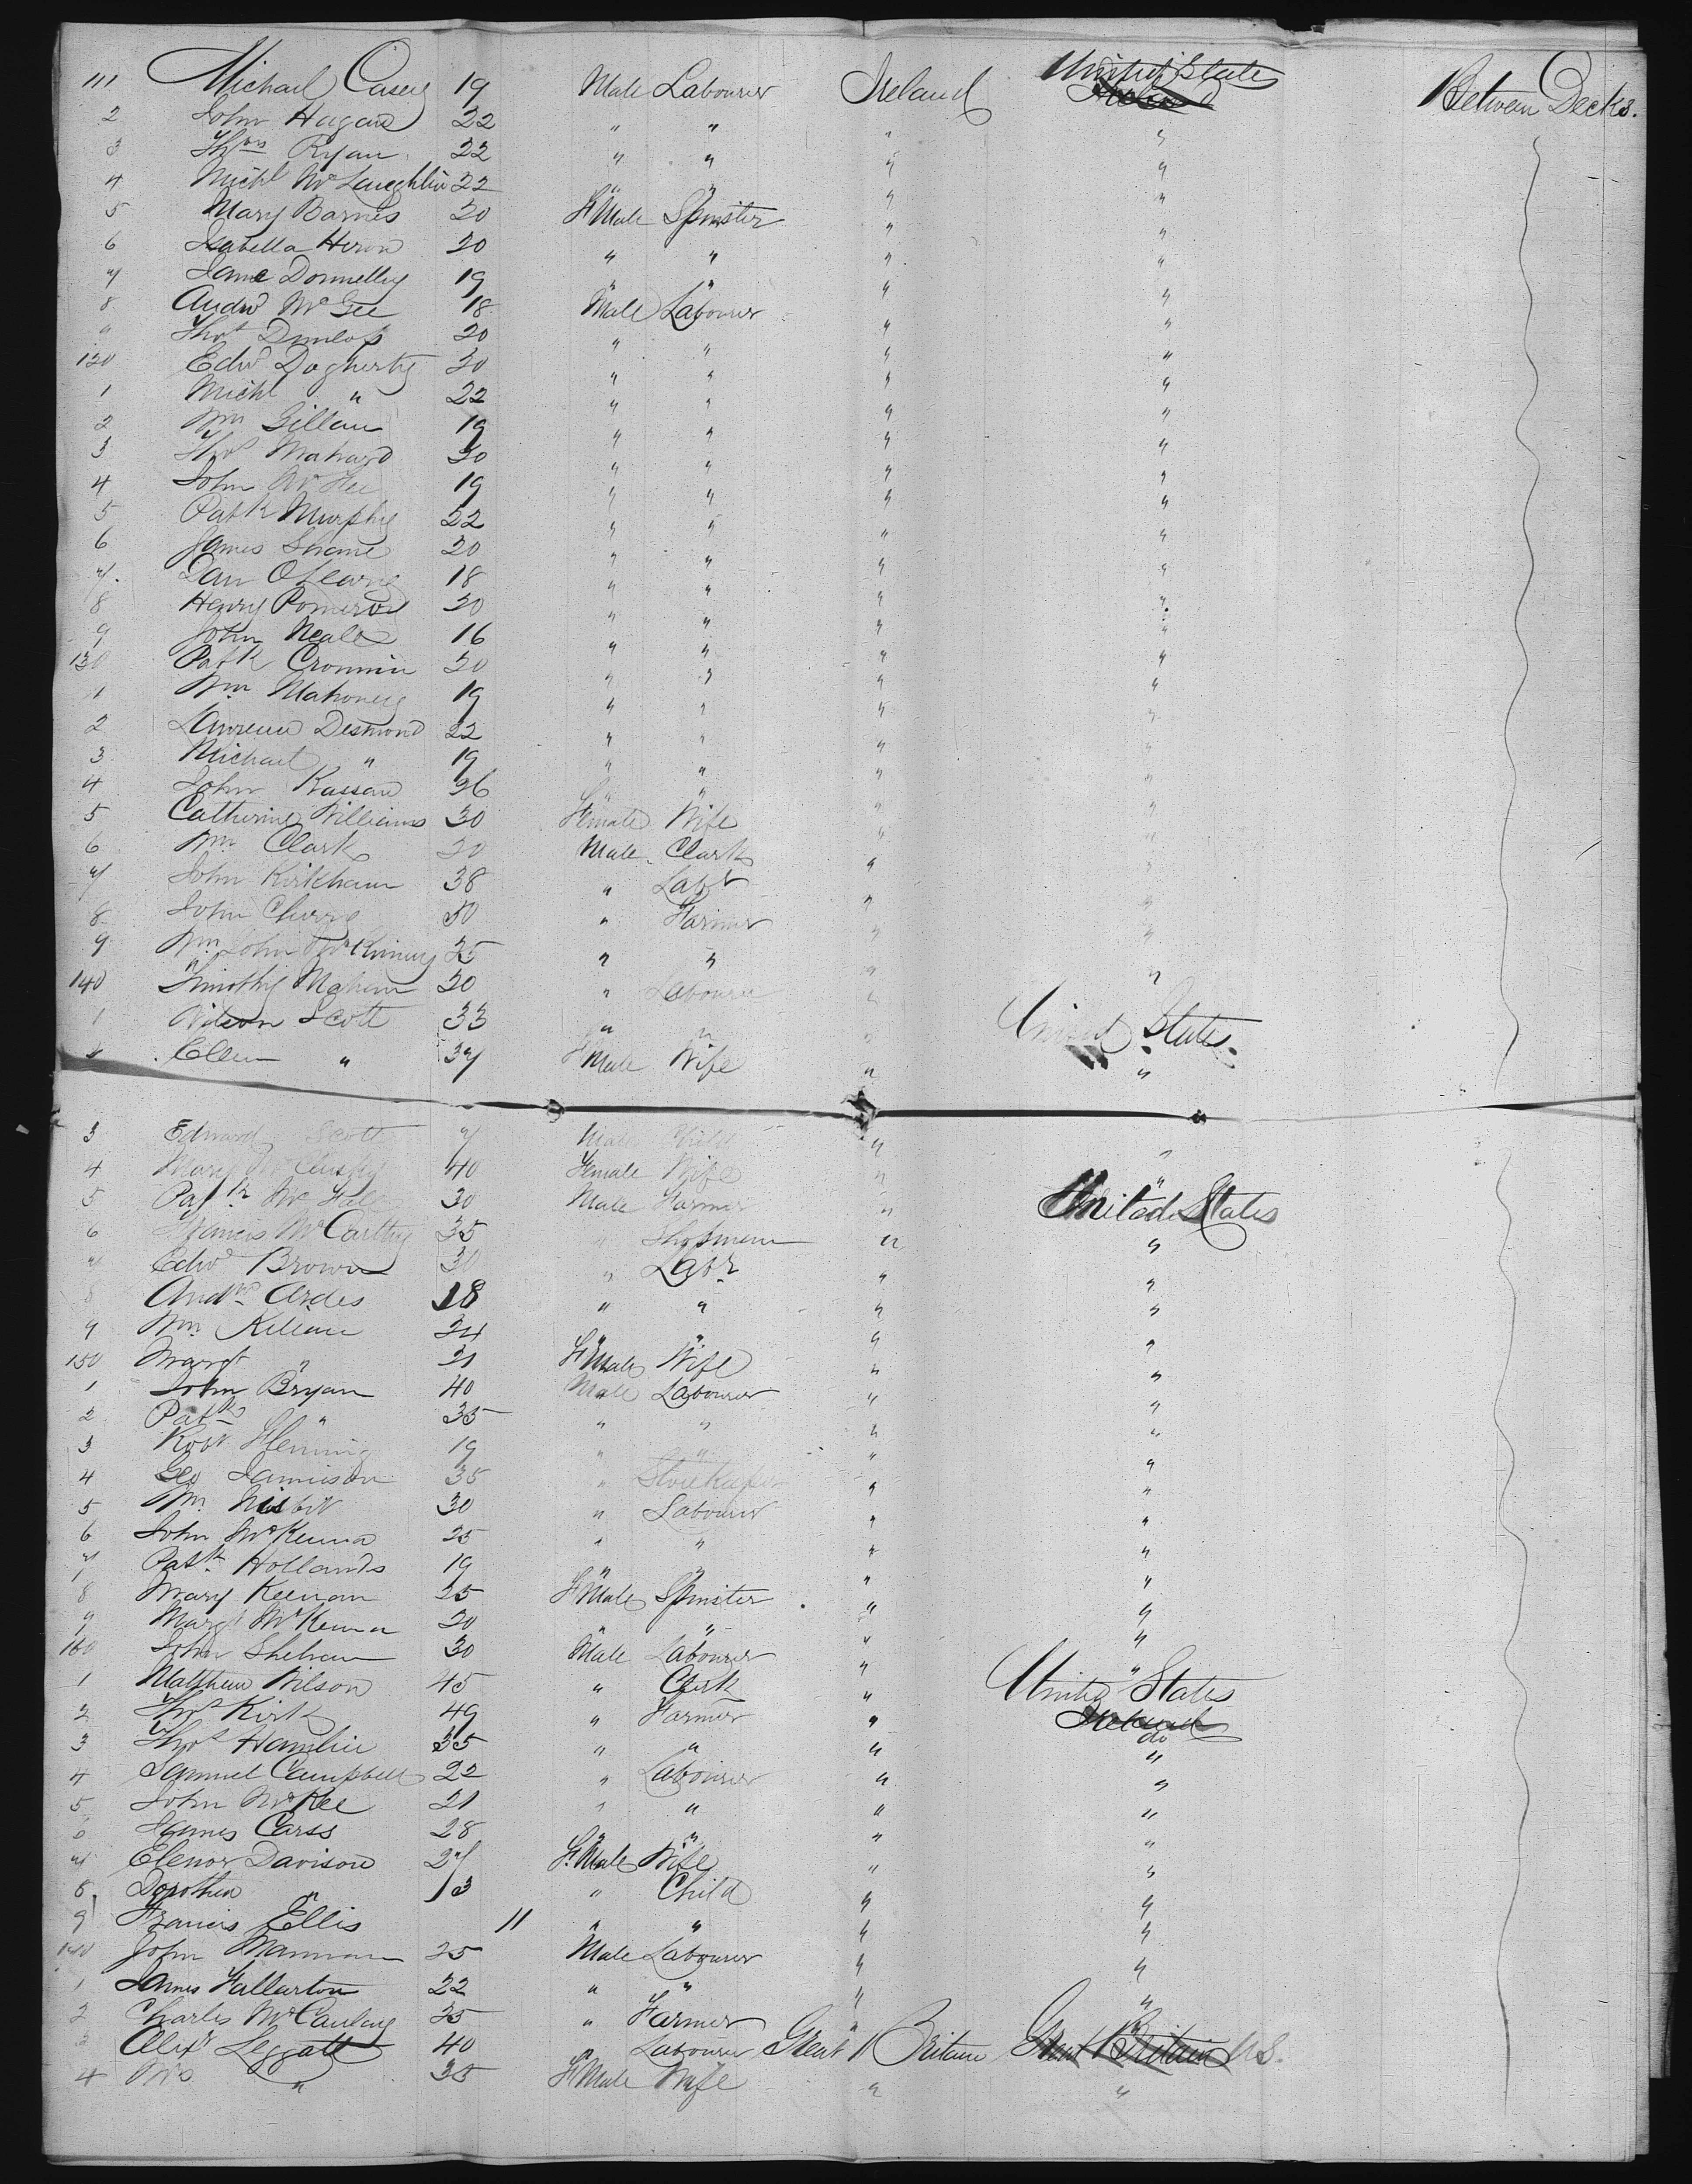 111 Michael Casey 19 Male Labourer Ireland United States Ireland Between Decks.
2 John Hagan 22 " " " "
3 Thos Ryan 22 " " " "
4 Michl McLaughlin 22 " " " "
5 Mary Barnes 20 FMale Spinster " "
6 Isabella Heron 20 " " " "
7 Jane Donnelly 19 " " " "
8 Andw McGee 18 Male Labourer " "
9 Thos Dunlop 20 " " " "
120 Edwd Dogherty 30 " " " "
1 Michl " 22 " " " "
2 Wm Gillan 19 " " " "
3 Thos 30 " " " "
4 John 19 " " " "
5 Patk Murphy 22 " " " "
6 James 20 " " " "
7. Dan OLeary 18 " " " "
8 Henry Pomeroy 20 " " " "
9 John Neale 16 " " " "
130 Patk Cronnin 20 " " " "
1 Wm Mahoney 19 " " " "
2 Lawrence Desmond 22 " " " "
3 Michael " 19 " " " "
4 John 26 " " " "
5 Catherine Williams 30 Female Wife " "
6 Wm Clark 20 Male Clark " "
7 John Kirkham 38 " Labr " "
8 John Cherry 50 " Farmer " "
9 Wm John 25 " " " "
140 Timothy 20 " Labourer " "
1 Wilson Scott 33 " " " United States
2 Ellen " 37 FMale Wife " "
3 Edward Scott 7 Male Child " "
4 Mary McClusky 40 Female Wife " "
5 Patk 30 Male Farmer " United States
6 Francis McCarthy 35 " Shopman " "
7 Edwd Brown 30 " Labr " "
8 Andw Ardes 18 " " " "
9 Wm Kilean 24 " " " "
150 Margt " 21 FMale Wife " "
1 John Bryan 40 Male Labourer " "
2 Patk " 35 " " " "
3 Robt Fleming 19 " " " "
4 Geo Jamison 35 " StoreKeeper " "
5 Wm Nisbit 30 " Labourer " "
6 John McKenna 25 " " " "
7 Patk Hollands 19 " " " "
8 Mary Keenan 25 FMale Spinster " "
9 Margt McKenna 20 " " " "
160 John Shehan 30 Male Labourer " "
1 Matthew Wilson 45 " Clerk " United States
2 Thos Kirk 49 " Farmer " Ireland do
3 Thos Hamlin 35 " " " "
4 Samuel Campbell 22 " Labourer " "
5 John McKee 21 " " " "
6 James Carss 28 " " " "
7 Elenor Davison 27 FMale Wife " "
8 Dorothea " 13 " Child " "
9 Francis Ellis 11 " " " "
170 John Mannan 25 Male Labourer " "
1 James Fallarton 22 " " " "
2 Charles McCauley 25 " Farmer " "
3 Alexr Leggatt 40 " Labourer Great Britain Great Britain U.S.
4 Mrs " 35 FMale Wife " "